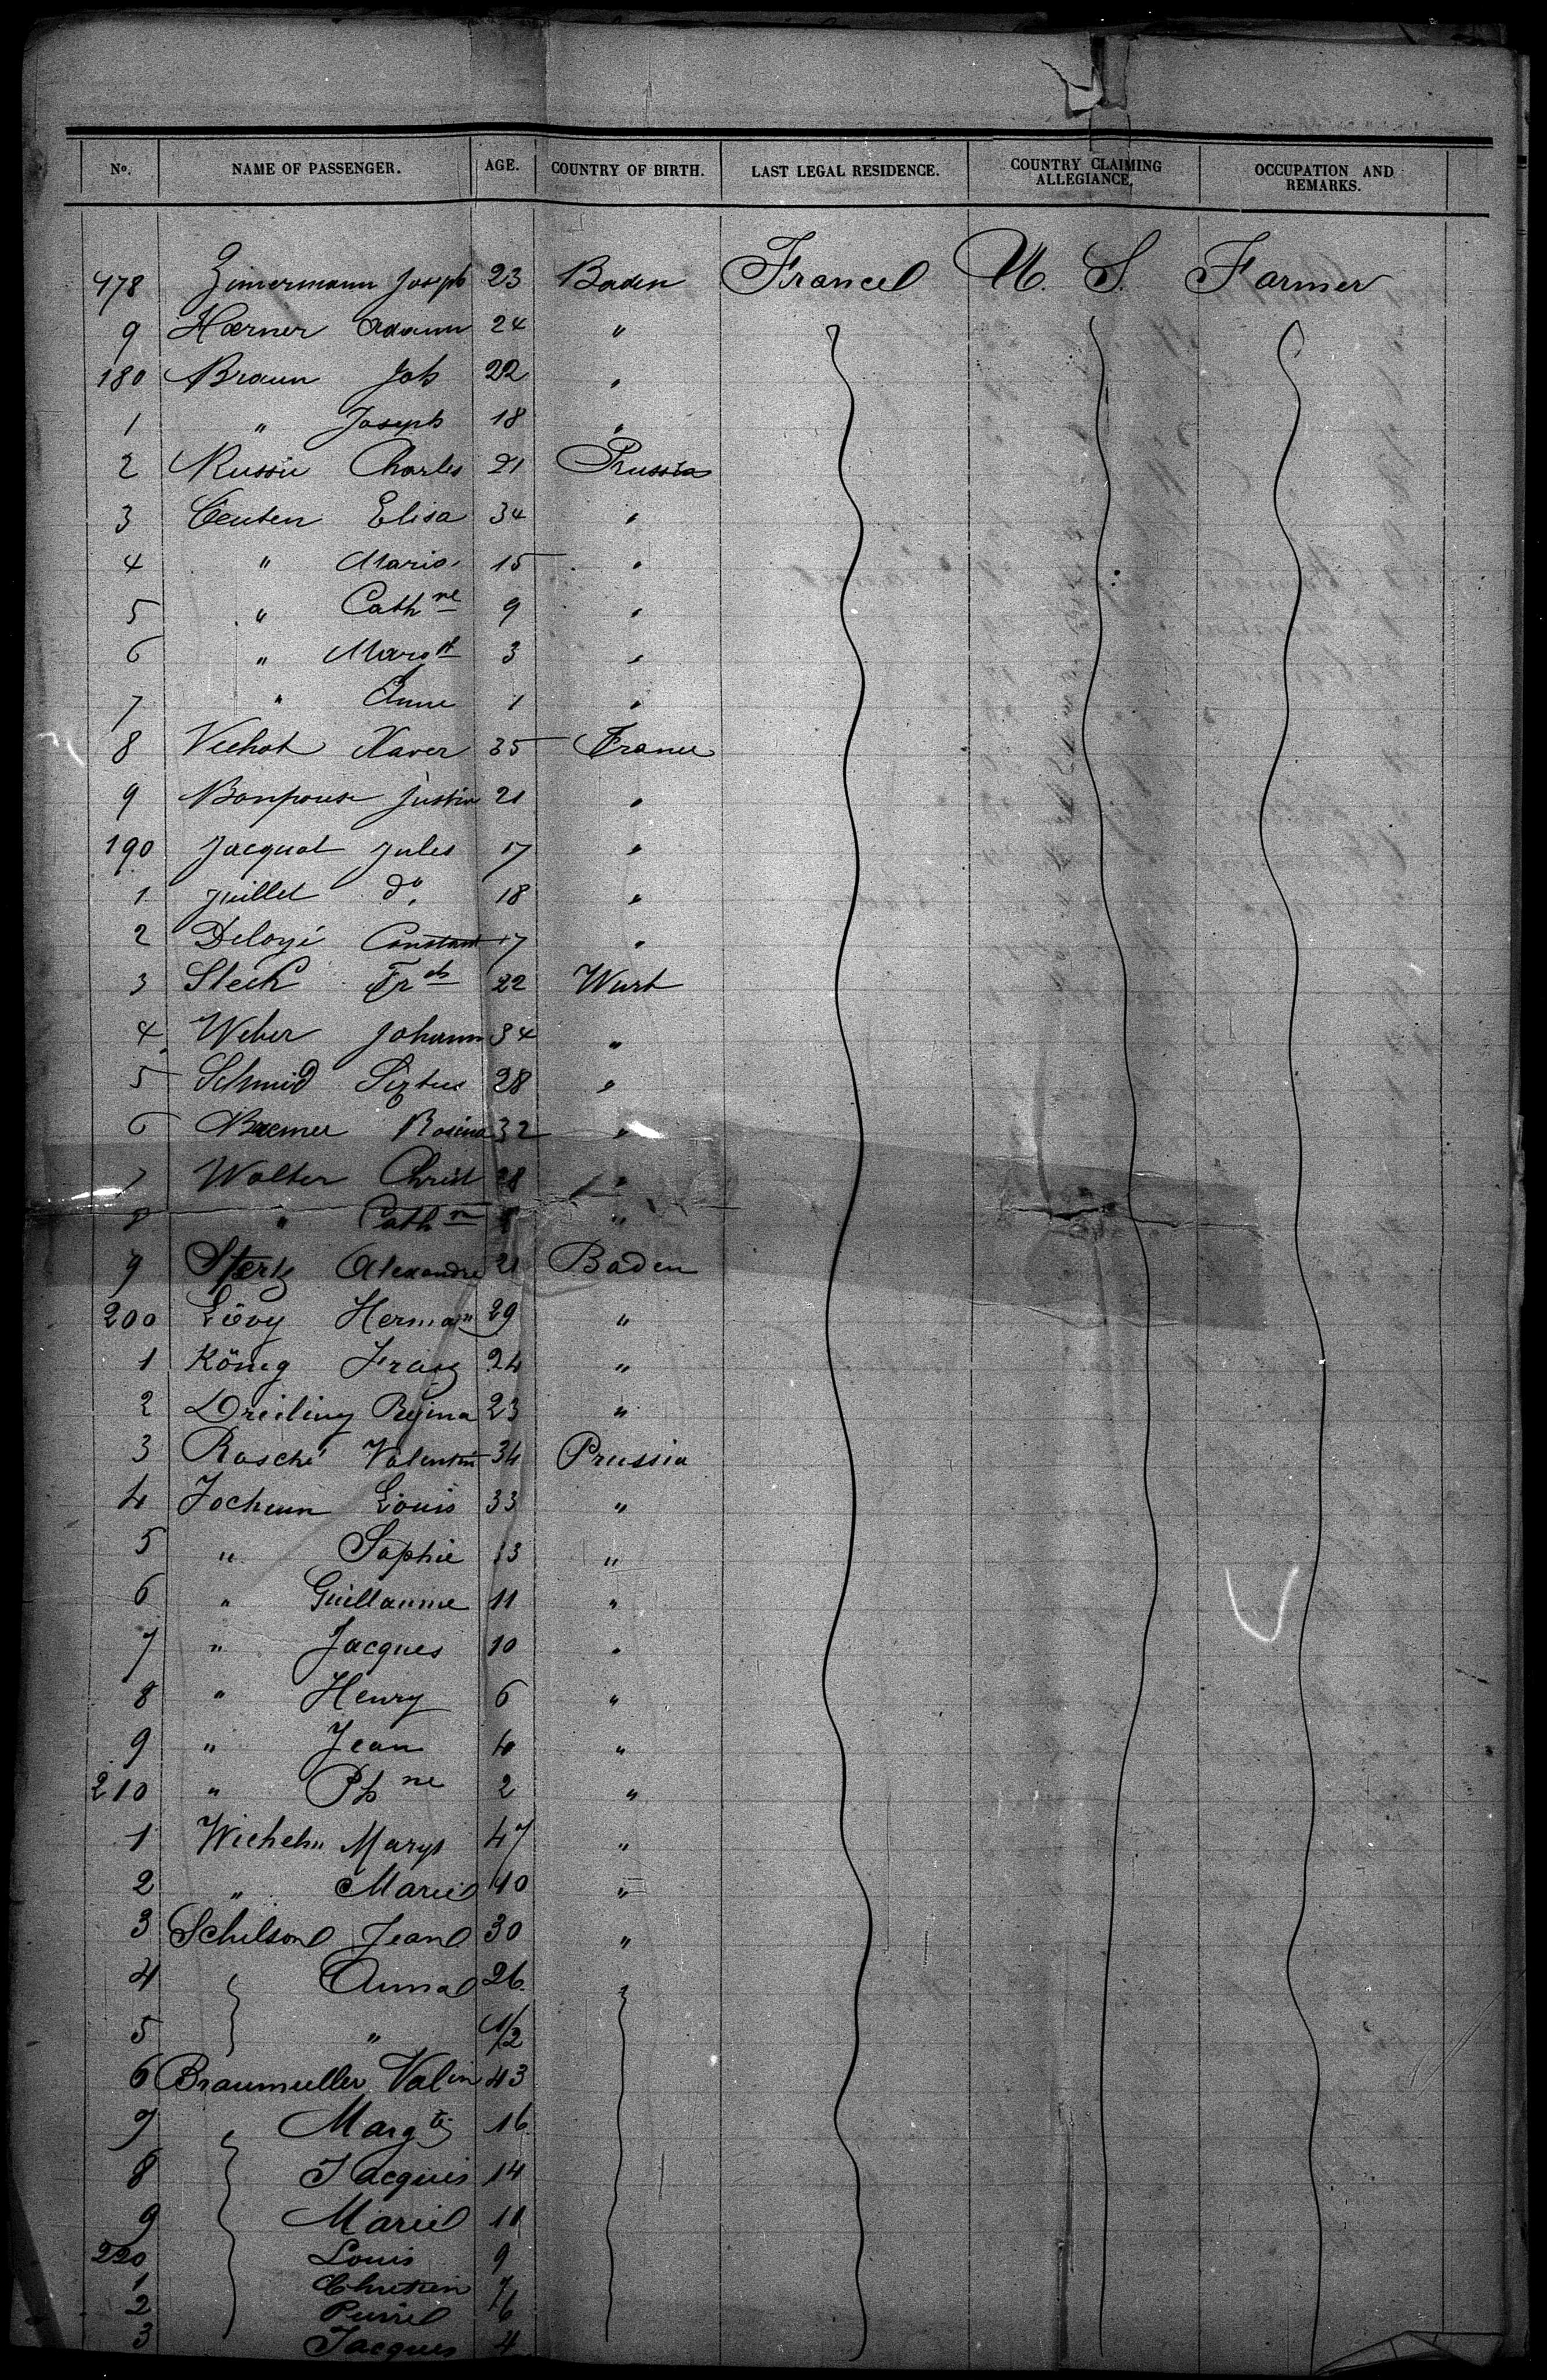 No. NAME OF PASSENGER. AGE. COUNTRY OF BIRTH. LAST LEGAL RESIDENCE. COUNTRY CLAIMING ALLEGIANCE. OCCUPATION AND REMARKS.
178 Zimermann Joseph 23 Baden France U. S. Farmer
9 Hærner Adam 24 "
180 Braun Joh 22 "
1 " Joseph 18 "
2 Russie Charles 21 Prussia
3 Elisa 34 "
4 " Maria 15 "
5 " Cath ne 9 "
6 " Marg t 3 "
7 " Anne 1 "
8 Vechot Xaver 35 France
9 Justin 21 "
190 Jacquot Jules 17 "
1 Juillet do 18 "
2 Deloyé Constant 17 "
3 Steck Fr ch 22 Wurt
4 Weber Johann 34 "
5 Schmid Sixtus 28 "
6 Rosina 32 "
7 Walter Christ 28 "
8 " Cath ne "
9 Alexandre 21 Baden
200 Lévy Hermann 29 "
1 König Franz 24 "
2 Dreiling Regina 23 "
3 Rasché Valentin 34 Prussia
4 Jochum Louis 33 "
5 " Sophie 13 "
6 " Guillaume 11 "
7 " Jacques 10 "
8 " Henry 6 "
9 " Jean 4 "
210 " Ph ne 2 "
1 Wichelm Margt 47 "
2 " Marie 10 "
3 Schilson Jean 30 "
4 Anna 26
5 " 1/2
6 Braumuller Valin 43
7 " Margte 16
8 Jacques 14
9 Marie 11
220 Louis 9
1 Chretien 7
2 Pierre 6
3 Jacques 4